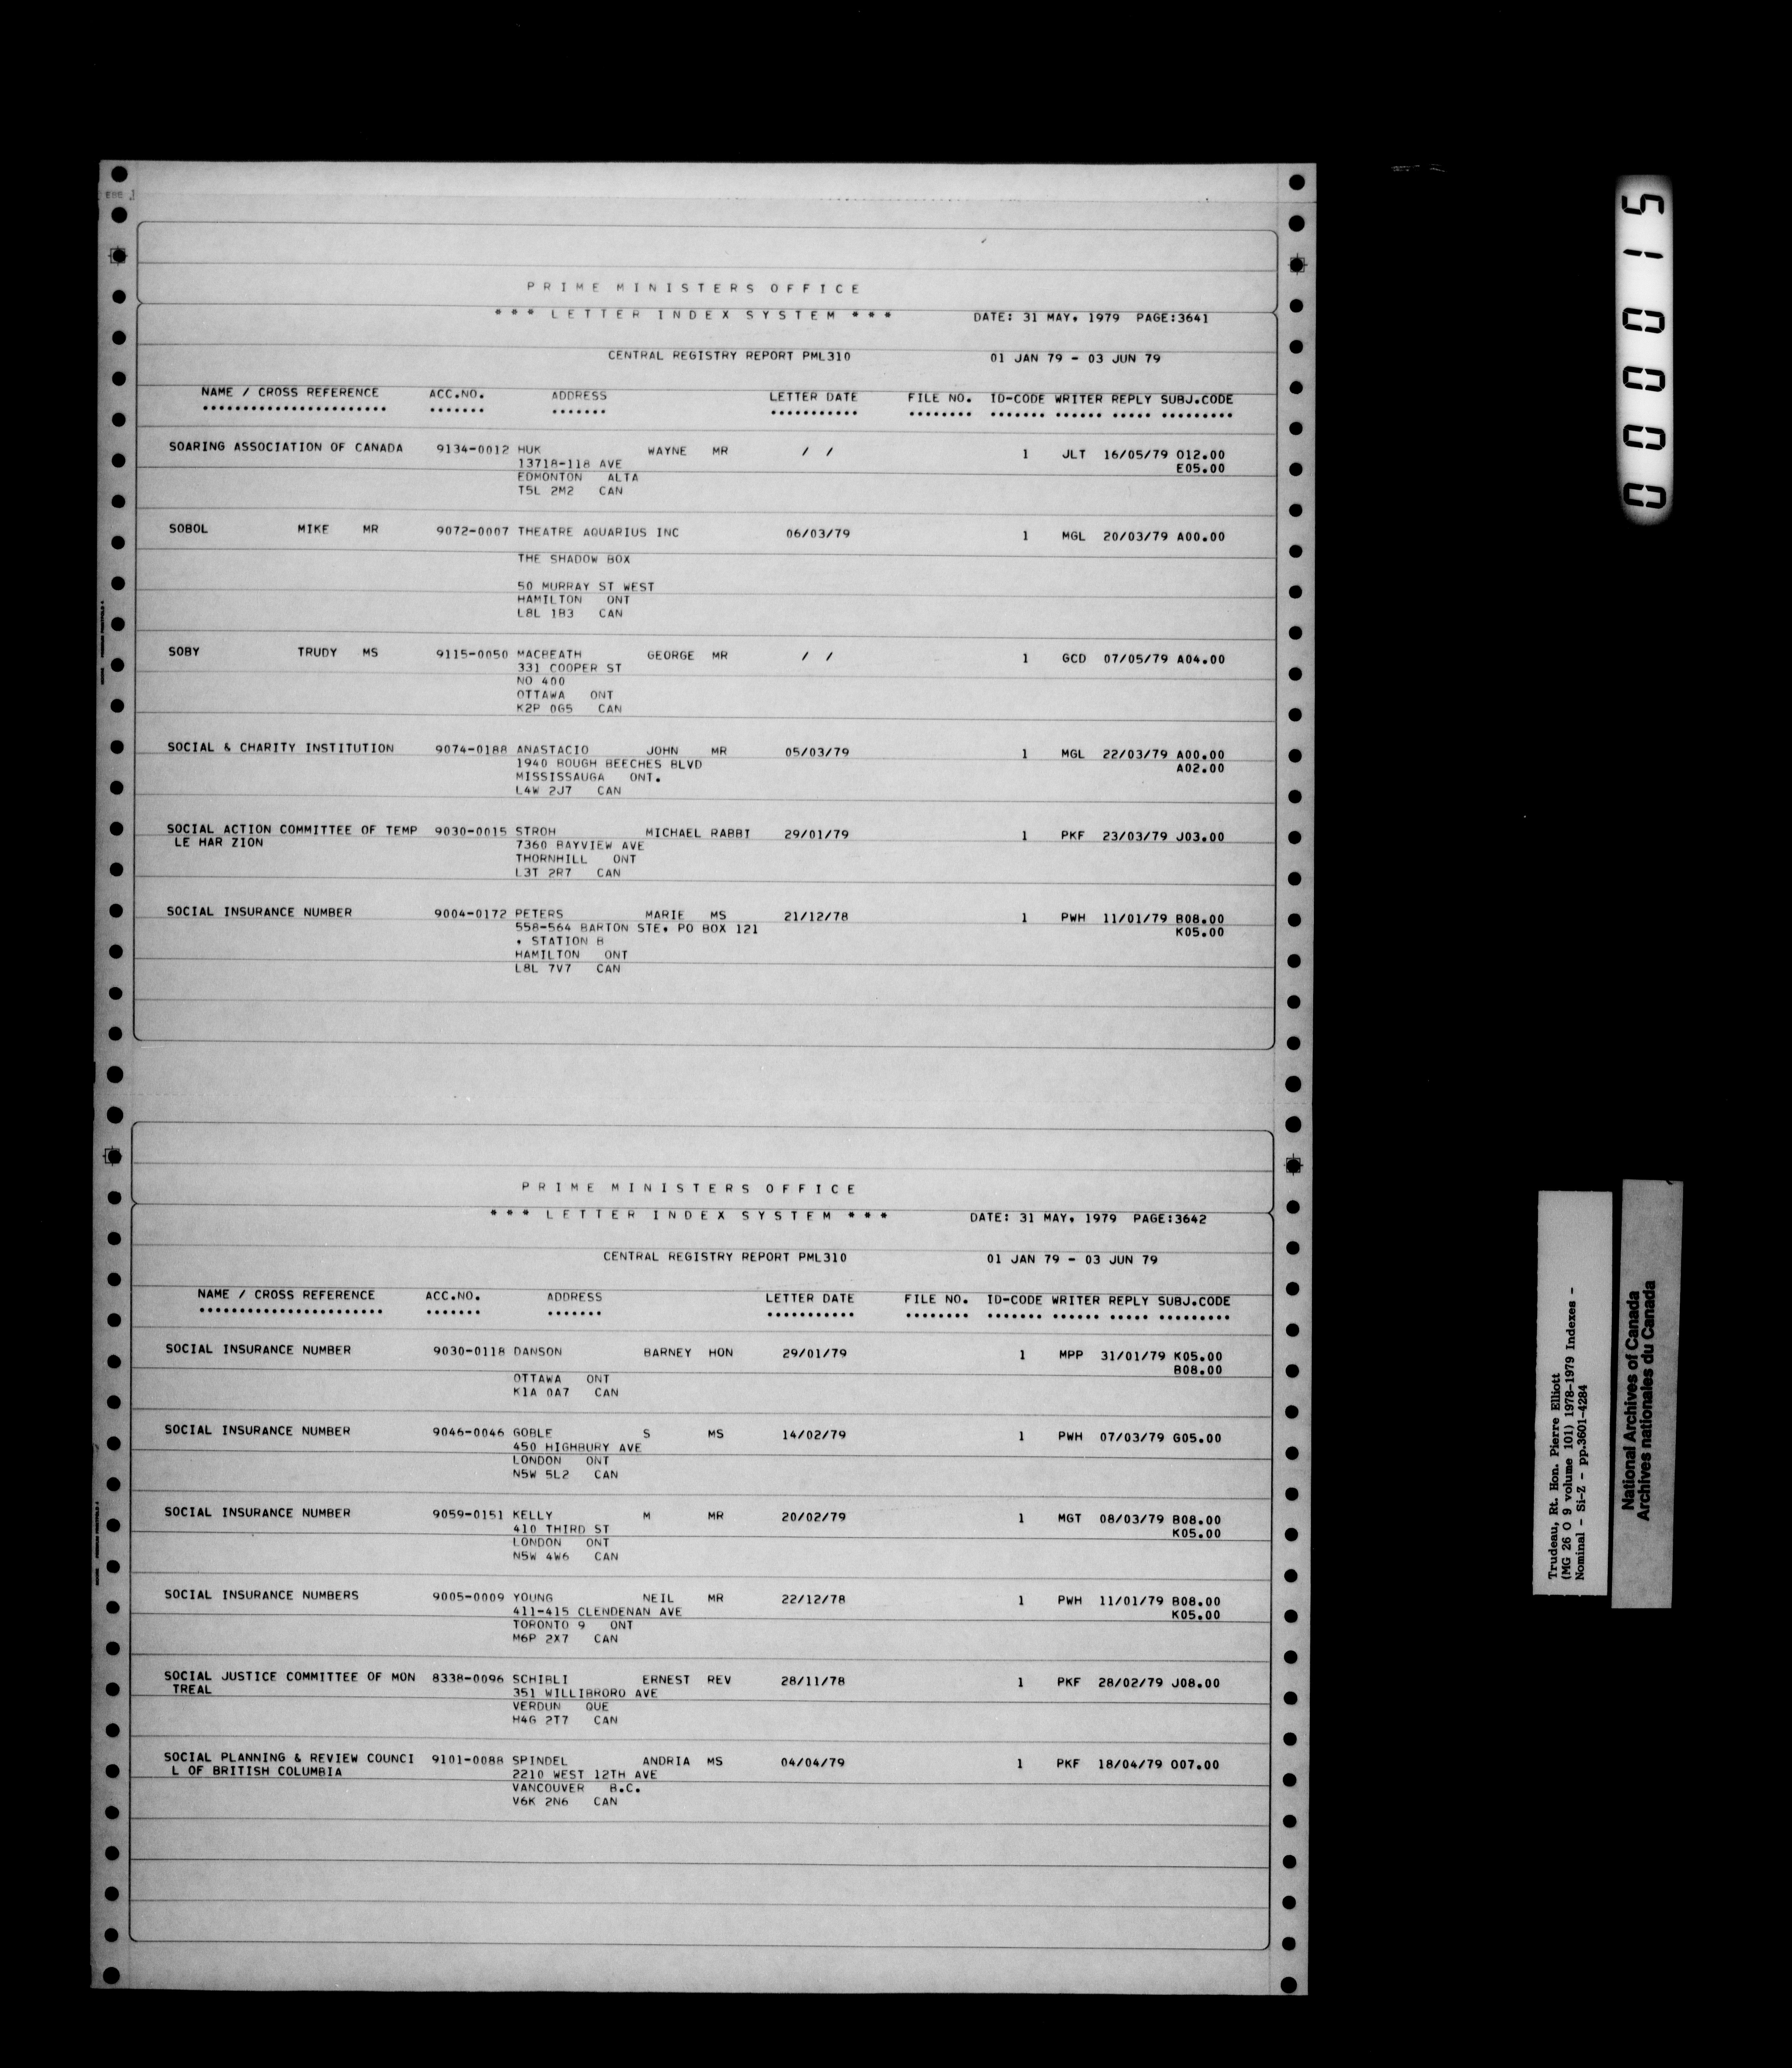 PRIME MINISTERS OFFICE
*** LETTER INDEX SYSTEM *** DATE: 31 MAY, 1979 PAGE:3641
CENTRAL REGISTRY REPORT PML310 01 JAN 79 - 03 JUN 79
NAME / CROSS REFERENCE ACC.NO. ADDRESS LETTER DATE FILE NO. ID-CODE WRITER REPLY SUBJ.CODE
SOARING ASSOCIATION OF CANADA 9134-0012 HUK WAYNE MR / / 1 JLT 16/05/79 O12.00
13718-118 AVE E05.00
EDMONTON ALTA
T5L 2M2 CAN
SOBOL MIKE MR 9072-0007 THEATRE AQUARIUS INC 06/03/79 1 MGL 20/03/79 A00.00
THE SHADOW BOX
50 MURRAY ST WEST
HAMILTON ONT
L8L 1B3 CAN
SOBY TRUDY MS 9115-0050 MACBEATH GEORGE MR / / 1 GCD 07/05/79 A04.00
331 COOPER ST
NO 400
OTTAWA ONT
K2P 0G5 CAN
SOCIAL & CHARITY INSTITUTION 9074-0188 ANASTACIO JOHN MR 05/03/79 1 MGL 22/03/79 A00.00
1940 BOUGH BEECHES BLVD A02.00
MISSISSAUGA ONT.
L4W 2J7 CAN
SOCIAL ACTION COMMITTEE OF TEMP 9030-0015 STROH MICHAEL RABBI 29/01/79 1 PKF 23/03/79 J03.00
LE HAR ZION 7360 BAYVIEW AVE
THORNHILL ONT
L3T 2R7 CAN
SOCIAL INSURANCE NUMBER 9004-0172 PETERS MARIE MS 21/12/78 1 PWH 11/01/79 B08.00
558-564 BARTON STE, PO BOX 121 K05.00
, STATION B
HAMILTON ONT
L8L 7V7 CAN
PRIME MINISTERS OFFICE
*** LETTER INDEX SYSTEM *** DATE: 31 MAY, 1979 PAGE:3642
CENTRAL REGISTRY REPORT PML310 01 JAN 79 - 03 JUN 79
NAME / CROSS REFERENCE ACC.NO. ADDRESS LETTER DATE FILE NO. ID-CODE WRITER REPLY SUBJ.CODE
SOCIAL INSURANCE NUMBER 9030-0118 DANSON BARNEY HON 29/01/79 1 MPP 31/01/79 K05.00
B08.00
OTTAWA ONT
K1A 0A7 CAN
SOCIAL INSURANCE NUMBER 9046-0046 GOBLE S MS 14/02/79 1 PWH 07/03/79 G05.00
450 HIGHBURY AVE
LONDON ONT
N5W 5L2 CAN
SOCIAL INSURANCE NUMBER 9059-0151 KELLY M MR 20/02/79 1 MGT 08/03/79 B08.00
410 THIRD ST K05.00
LONDON ONT
N5W 4W6 CAN
SOCIAL INSURANCE NUMBERS 9005-0009 YOUNG NEIL MR 22/12/78 1 PWH 11/01/79 B08.00
411-415 CLENDENAN AVE K05.00
TORONTO 9 ONT
M6P 2X7 CAN
SOCIAL JUSTICE COMMITTEE OF MON 8338-0096 SCHIBLI ERNEST REV 28/11/78 1 PKF 28/02/79 J08.00
TREAL 351 WILLIBRORD AVE
VERDUN QUE
H4G 2T7 CAN
SOCIAL PLANNING & REVIEW COUNCI 9101-0088 SPINDEL ANDRIA MS 04/04/79 1 PKF 18/04/79 O07.00
L OF BRITISH COLUMBIA 2210 WEST 12TH AVE
VANCOUVER B.C.
V6K 2N6 CAN
000015
Trudeau, Rt. Hon. Pierre Elliott
(MG 26 O 9 volume 101) 1978-1979 Indexes -
Nominal - Si-Z - pp.3601-4284
National Archives of Canada
Archives nationales du Canada